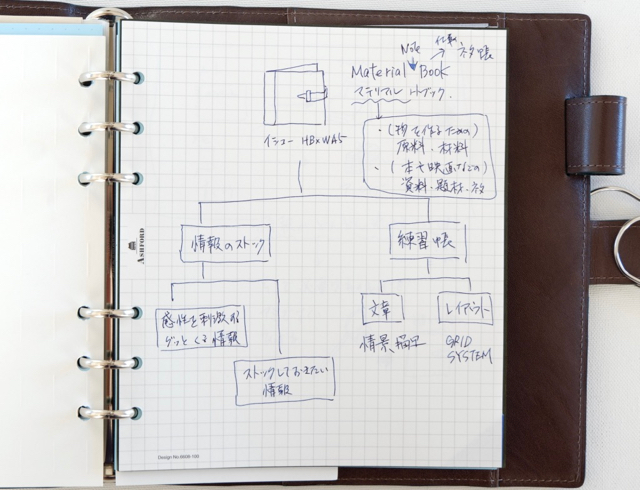 Note
ネタ帳
Material Book
マテリアル ブック.
・(物を作るための)
原料・材料
・(本や映画などの)
資料・題材・ネタ
イシュー HB×WA5
情報のストック
練習帳
感性を刺激する
グッとくる情報
ストックしておきたい
情報
文章
レイアウト
情景、描写
GRID
SYSTEM
ASHFORD
Design No.6609-100